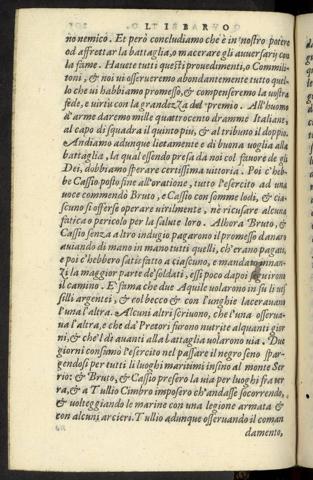 no nemicó. Et però concludiamo che è in nostro potere
od affrettar la battaglia, o macerare gli auuersarij con
la fame. Hauete tutti questi prouedimenti, o Commili-
toni, & noi vi osserueremo abondantemente tutto quel-
lo che vi habbiamo promesso, & compenseremo la vostra
fede, e virtù con la grandezza del premio. All'huomo
d'arme daremo mille quattrocento dramme Italiane,
al capo di squadra il quinto più, & al tribuno il doppio.
Andiamo adunque lietamente e di buona voglia alla
battaglia, la qual essendo presa da noi col fauore de gli
Dei, dobbiamo sperare certissima vittoria. Poi c'heb-
be Cassio posto fine all'oratione, tutto l'esercito ad una
voce commendò Bruto, e Cassio con somme lodi, & cia-
scuno si offerse operare virilmente, nè ricusare alcuna
fatica o pericolo per la salute loro. Alhora Bruto, &
Cassio senza altro indugio pagarono il promesso danaro
auiando di mano in mano tutti quelli, ch'erano pagati,
e poi c'hebbero satisfatto a ciascuno, e mandato innan-
zi la maggior parte de' soldati, essi poco dapoi seguirono
il camino. E' fama che due Aquile volarono in su li ues
silli argentei, & col becco & con l'unghie lacerauano
l'una l'altra. Alcuni altri scriuono, che l'una osserua-
ua l'altra, e che da' Pretori furono nutrite alquanti gior
ni, & che'l dì auanti alla battaglia uolarono via. Due
giorni consumò l'esercito nel passare il negro seno spar-
gendosi per tutti li luoghi maritimi insino al monte Ser
rio: & Bruto, & Cassio presero la via per luoghi fra ter
ra, & a Tullio Cimbro imposero ch'andasse scorrendo,
& volteggiando le marine con una legione armata &
con alcuni arcieri. Tullio adunque osseruando il coman
damento,